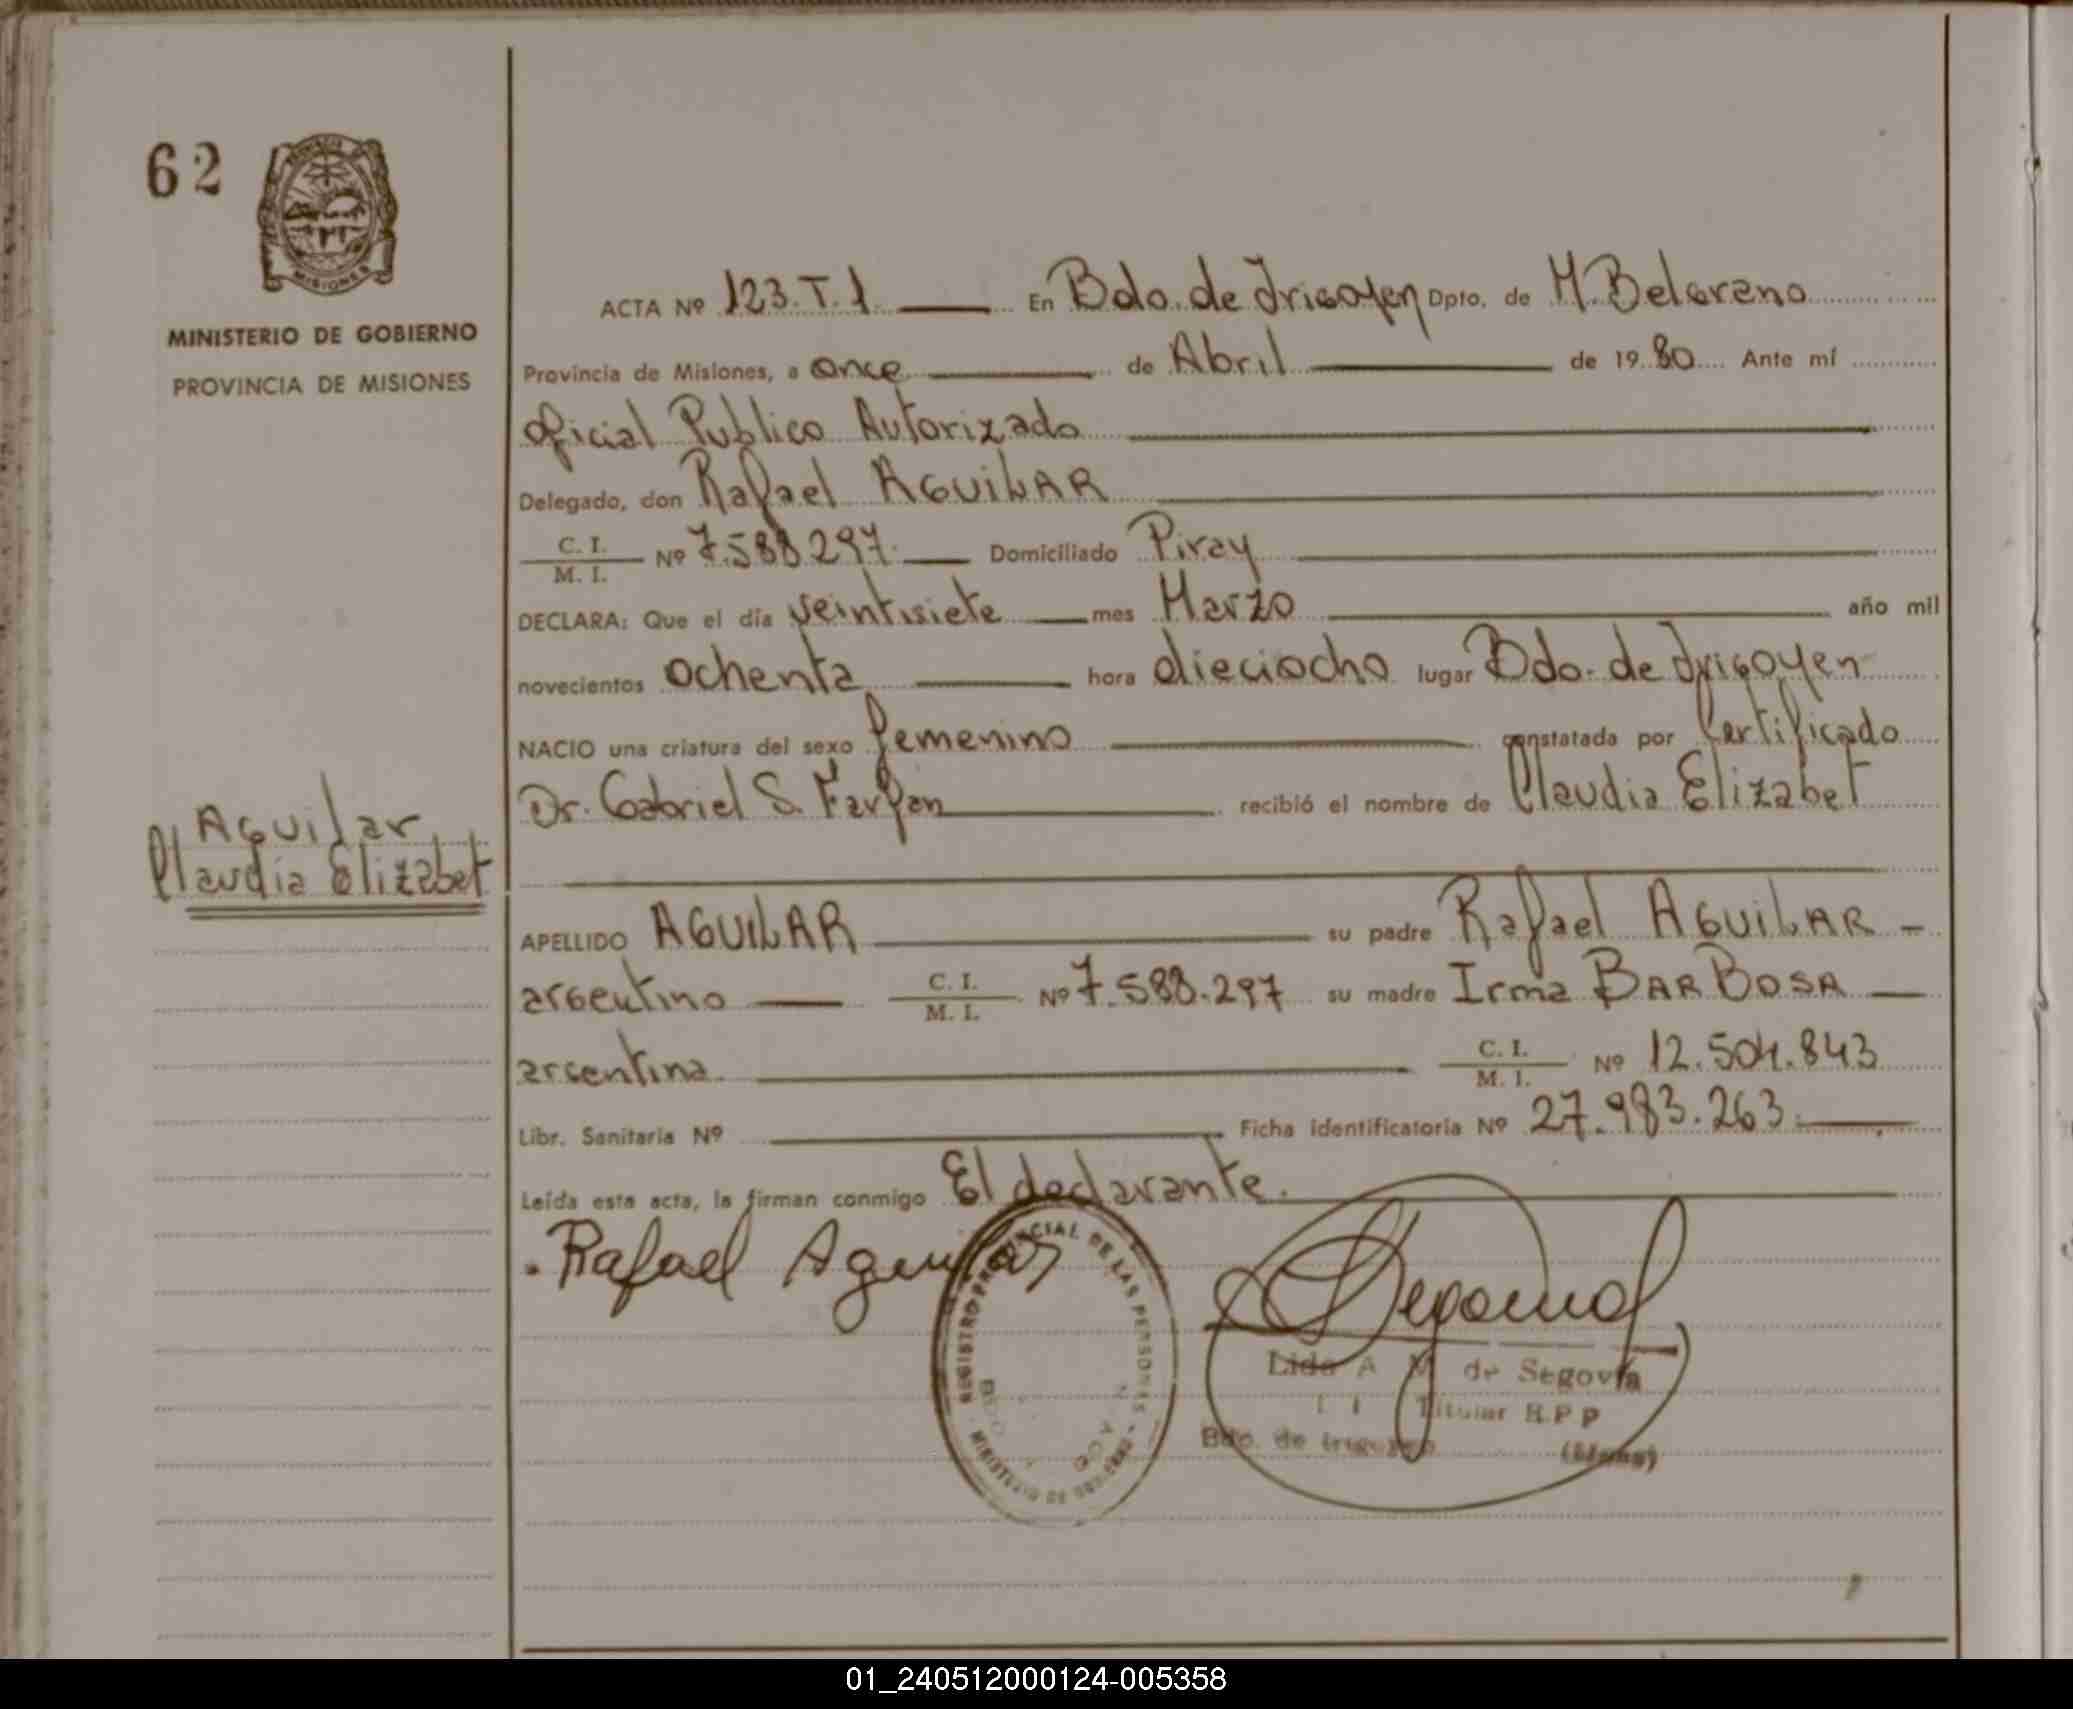 62
MISIONES
MINISTERIO DE GOBIERNO
PROVINCIA DE MISIONES
Aguilar
Claudia Elizabet
ACTA Nº 123.T.1 En Bdo. de Irigoyen Dpto. de M. Belgrano
Provincia de Misiones, a once de Abril de 1980 Ante mí
Oficial Publico Autorizado
Delegado, don Rafael AGUILAR
C. I. / M. I. Nº 7.588.297 Domiciliado Piray
DECLARA: Que el día veintisiete mes Marzo año mil
novecientos ochenta hora dieciocho lugar Bdo. de Irigoyen
NACIO una criatura del sexo femenino constatada por Certificado
Dr. Gabriel S. Farfan recibió el nombre de Claudia Elizabet
APELLIDO AGUILAR su padre Rafael AGUILAR
argentino C. I. / M. I. Nº 7.588.297 su madre Irma BARBOSA
argentina C. I. / M. I. Nº 12.504.843
Libr. Sanitaria Nº Ficha identificatoria Nº 27.983.263.
Leída esta acta, la firman conmigo El declarante.
Rafael Aguilar
REGISTRO PROVINCIAL DE LAS PERSONAS
Segovia
Lida A M de Segovia
Titular R.P.P
Bdo. de Irigoyen (Mnes)
01_240512000124-005358